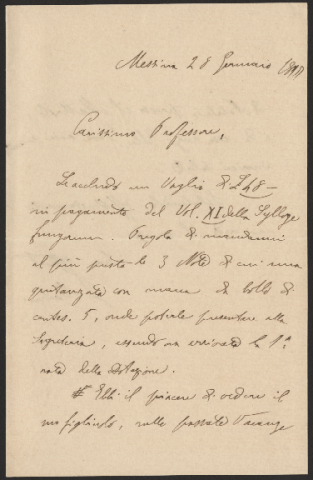 Messina 28 Gennaio 1898
Carissimo Professore,
Le accludo un Vaglia di £ 48 –
in pagamento del Vol. XI della Sylloge
fungorum. Pregola di mandarmi
al più presto le 3 Note di cui una
quitanzata con marca da bollo di
centes. 5, onde poterle presentare alla
Segreteria, essendo ora arrivata la 1ª
rata della dotazione.
Ebbi il piacere di vedere il
suo figliuolo, nelle passate Vacanze